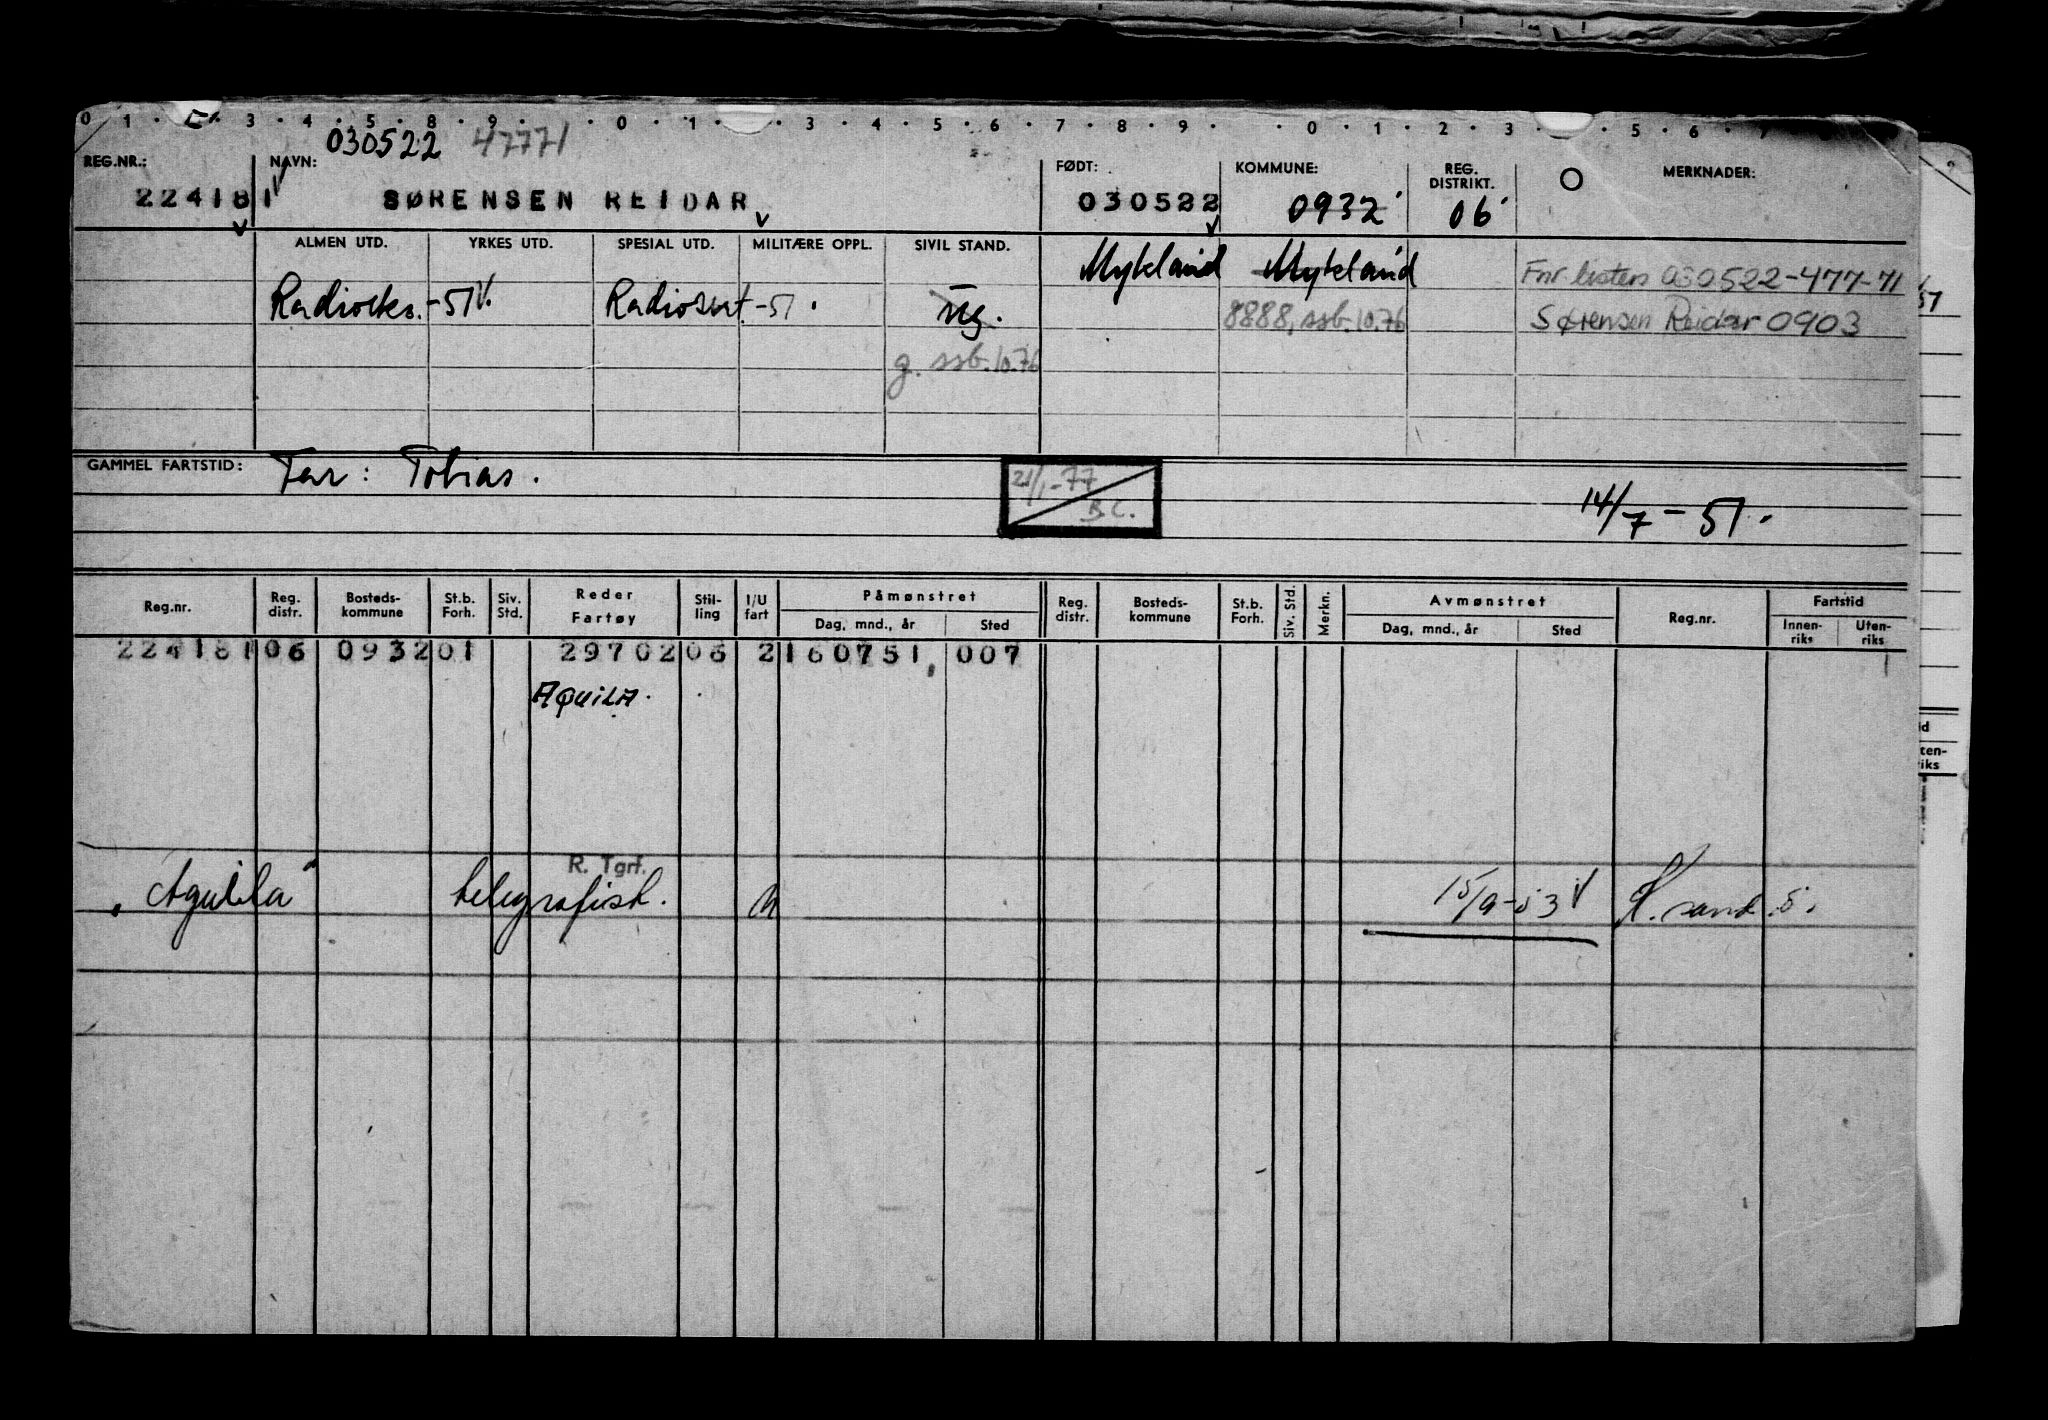 0 1 . . 3 . 4 . 5 . 8 . 9 . . . 0 . 1 . . 3 . 4 . 5 . 6 . 7 . 8 . 9 . . 0 . 1 . 2 . 3 . . 5 . 6 . 7
030522 47771
REG.NR.: NAVN: FØDT: KOMMUNE: REG. DISTRIKT. MERKNADER:
224181 SØRENSEN REIDAR 030522 0932 06
ALMEN UTD. YRKES UTD. SPESIAL UTD. MILITÆRE OPPL. SIVIL STAND. Mykland Mykland
Radioeks. -51 Radiosert -51. ug. 8888, ssb. 10.76 Fnr. listen 030522-477-71
Sørensen Reidar 0903
g. ssb. 10.76
GAMMEL FARTSTID: Far: Tobias. 21/1-77 B.C. 14/7-51.
Reg.nr. Reg. distr. Bosteds-kommune St.b. Forh. Siv. Std. Reder Fartøy Stil-ling I/U fart Påmønstret Dag, mnd., år Sted Reg. distr. Bosteds-kommune St.b. Forh. Siv. Std. Merkn. Avmønstret Dag, mnd., år Sted Reg.nr. Fartstid Innen-riks Uten-riks
224181 06 0932 01 29702 06 2 160751 007
AQUILA.
R. Tgrf.
"Aquila" telegrafist. U 15/9-53 K.sand.S.